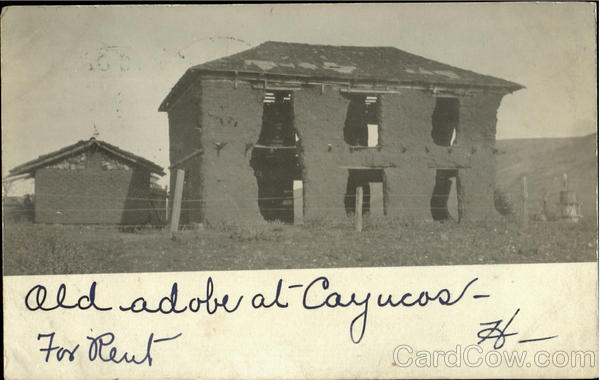 Old adobe at Cayucos—
For Rent
H—
CardCow.com